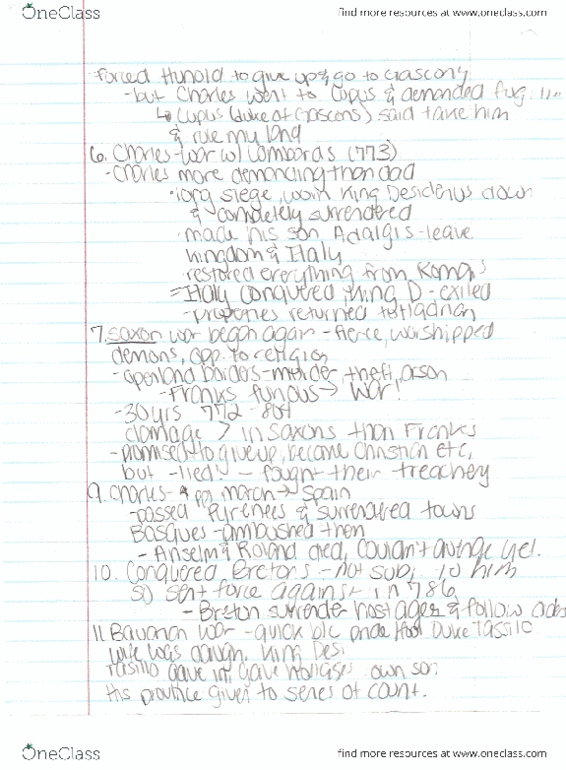 OneClass
find more resources at www.oneclass.com
-forced Hunold to give up & go to Gascony
-but Charles went to Lupus & demanded fug.
↳ Lupus (duke of Gascons) said take him
& rule my land
6. Charles-war w/ Lombards (773)
-Charles more demanding than dad
·long siege, worn King Desiderius down
& completely surrendered
·made his son Adalgis-leave
kingdom & Italy
·restored everything from Romans
=Italy conquered, King D-exiled
-properties returned to Hadrian
7. Saxon war began again -fierce, worshipped
demons, opp. to religion
-openland borders-murder, theft, arson
-Franks furious → War!
-30 yrs 772-804
damage > in Saxons than Franks
-promised to give up, become Christian etc,
but -lied! - fought their treachery
9. Charles- → Spain
-passed Pyrenees & surrendered towns
Basques-ambushed them
-Anselm & Roland died, couldn't avenge yet.
10. Conquered Bretons -not sub; to him
so sent force against in 786
-Breton surrender hostages & follow
11. Bavarian war -quick b/c pride of Duke Tassilo
wife was daugh. King Desi
Tasillo gave in, gave hostages own son
His province given to series of count.
OneClass
find more resources at www.oneclass.com